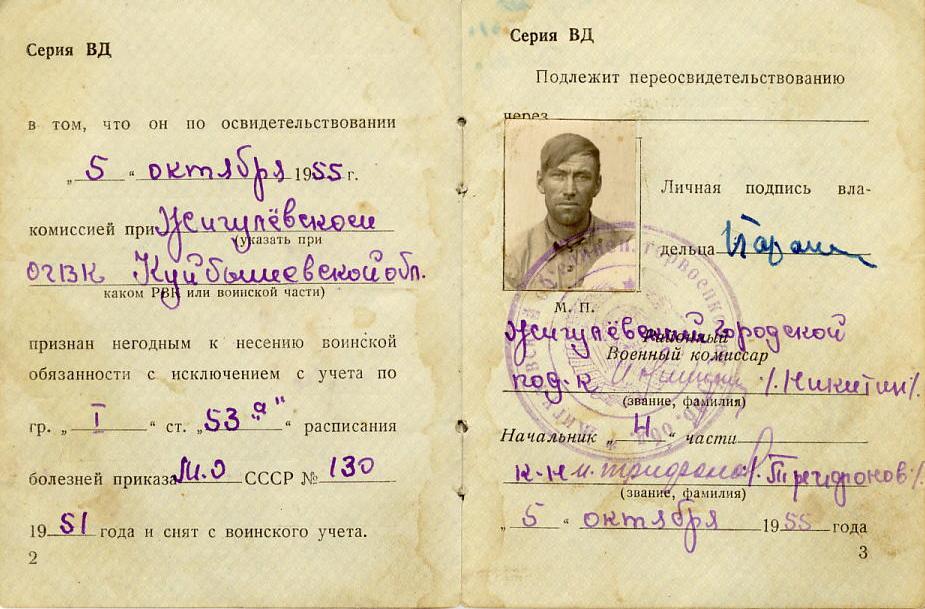 Серия ВД
в том, что он по освидетельствовании
„5“ октября 1955 г.
комиссией при Жигулёвском
(указать при
ОГВК Куйбышевской обл.
каком РВК или воинской части)
признан негодным к несению воинской
обязанности с исключением с учета по
гр. „I“ ст. „53 "а"“ расписания
болезней приказа М.О СССР № 130
1951 года и снят с воинского учета.
2
Серия ВД
Подлежит переосвидетельствованию
через
Личная подпись вла-
дельца
М. П.
Жигулёвский Городской
Районный
Военный комиссар
под-к /.Никитин/.
(звание, фамилия)
Начальник „4“ части
к-н /.Трифонов/.
(звание, фамилия)
„5“ октября 1955 года
3